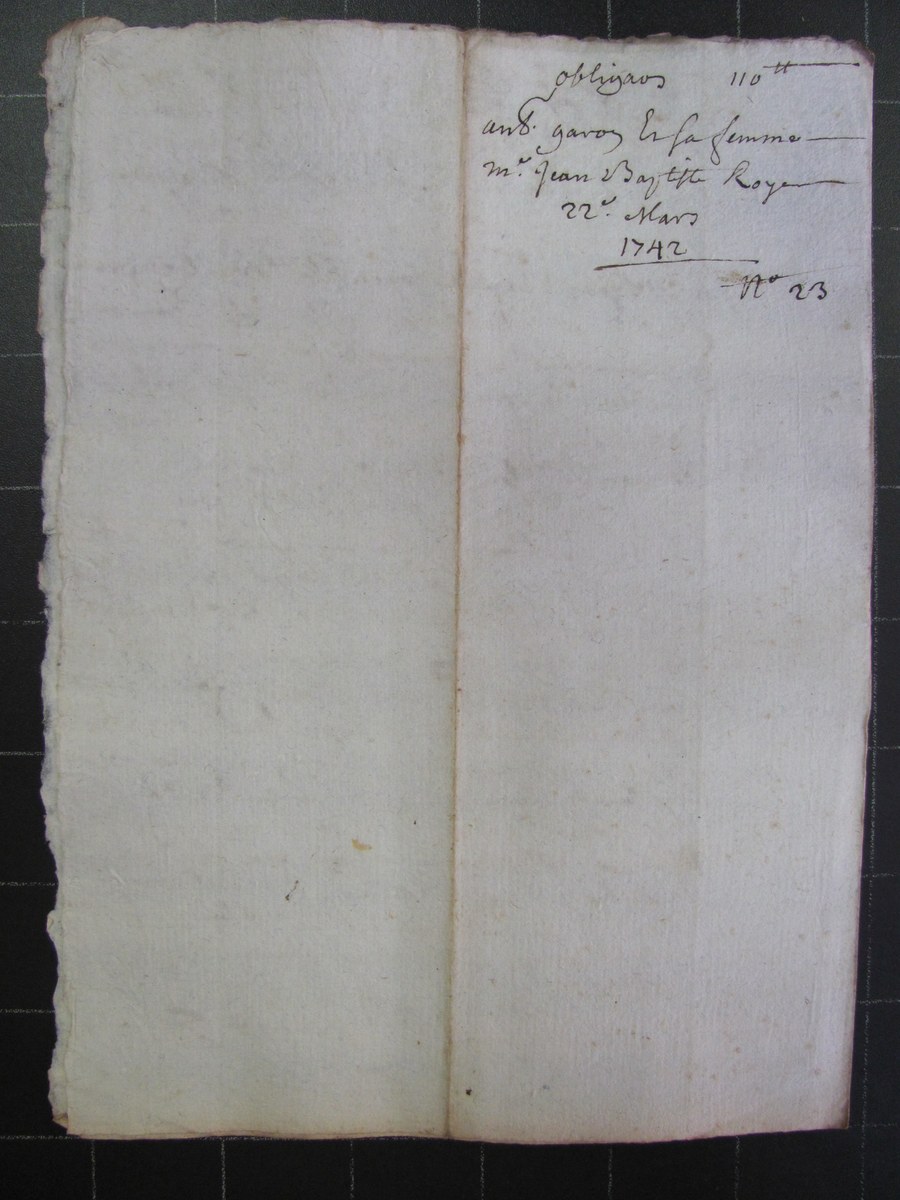 obligaõn 110ᵗᵗ
antᵉ. garon Et sa femme
mʳ. Jean Baptiste Royer
22ᵉ. Mars
1742
Nº 23